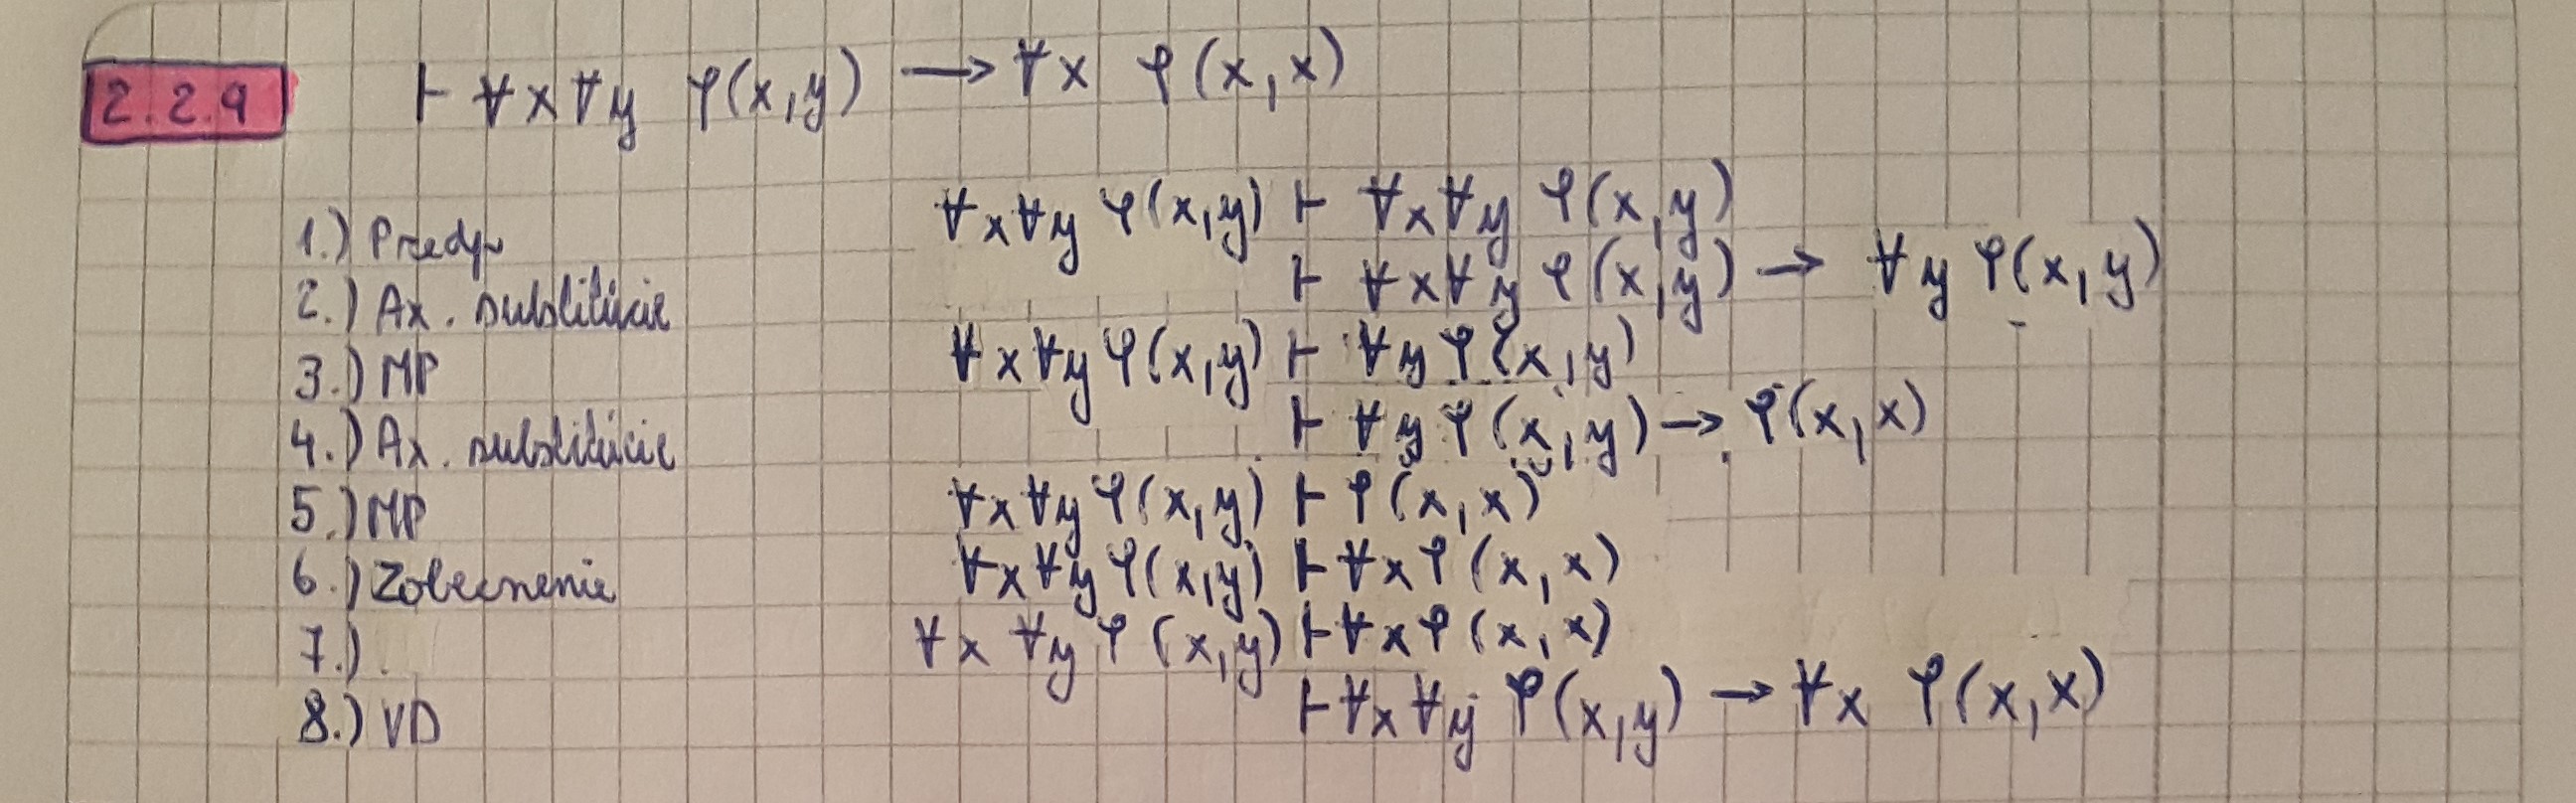 2.2.9 ⊢ ∀x∀y φ(x,y) → ∀x φ(x,x)
1.) Predp ∀x∀y φ(x,y) ⊢ ∀x∀y φ(x,y)
2.) Ax. substitúcie ⊢ ∀x∀y φ(x,y) → ∀y φ(x,y)
3.) MP ∀x∀y φ(x,y) ⊢ ∀y φ(x,y)
4.) Ax. substitúcie ⊢ ∀y φ(x,y) → φ(x,x)
5.) MP ∀x∀y φ(x,y) ⊢ φ(x,x)
6.) Zobecnenie ∀x∀y φ(x,y) ⊢ ∀x φ(x,x)
7.) ∀x ∀y φ(x,y) ⊢ ∀x φ(x,x)
8.) VD ⊢ ∀x∀y φ(x,y) → ∀x φ(x,x)